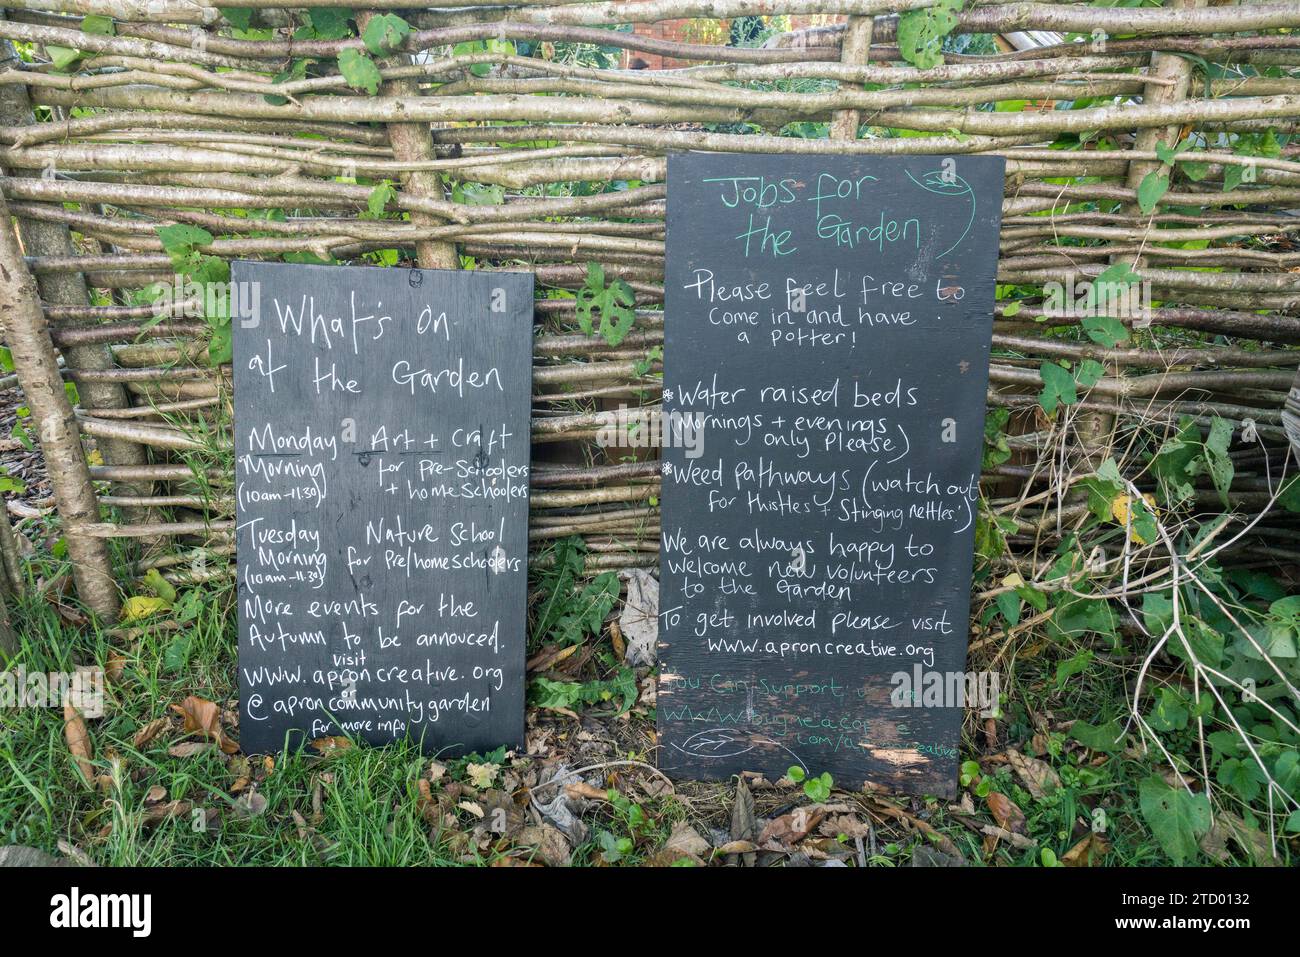 What's on
at the Garden
Monday Art + Craft
Morning for Pre-schoolers
(10am-11.30) + homeschoolers
Tuesday Nature School
Morning for Pre/homeschoolers
(10am-11.30)
More events for the
Autumn to be annouced.
visit
www.aproncreative.org
@aproncommunitygarden
for more info
Jobs for
the Garden
Please feel free to
come in and have
a potter!
*Water raised beds
(Mornings + evenings
only please)
*Weed pathways (watch out
for thistles + stinging nettles!)
We are always happy to
welcome new volunteers
to the Garden
To get involved please visit
www.aproncreative.org
You can support us
www.
com/
creative
alamy
alamy
Image ID: 2TD0132
www.alamy.com